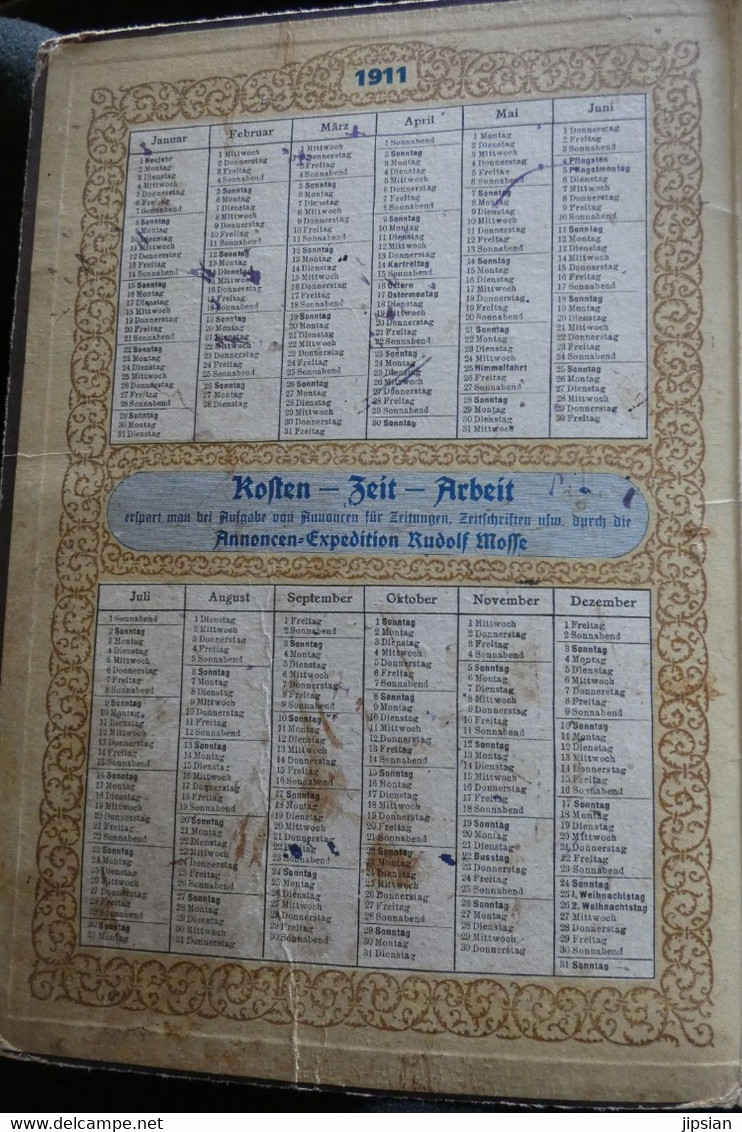 1911
Januar
1 Neujahr
2 Montag
3 Dienstag
4 Mittwoch
5 Donnerstag
6 Freitag
7 Sonnabend
8 Sonntag
9 Montag
10 Dienstag
11 Mittwoch
12 Donnerstag
13 Freitag
14 Sonnabend
15 Sonntag
16 Montag
17 Dienstag
18 Mittwoch
19 Donnerstag
20 Freitag
21 Sonnabend
22 Sonntag
23 Montag
24 Dienstag
25 Mittwoch
26 Donnerstag
27 Freitag
28 Sonnabend
29 Sonntag
30 Montag
31 Dienstag
Februar
1 Mittwoch
2 Donnerstag
3 Freitag
4 Sonnabend
5 Sonntag
6 Montag
7 Dienstag
8 Mittwoch
9 Donnerstag
10 Freitag
11 Sonnabend
12 Sonntag
13 Montag
14 Dienstag
15 Mittwoch
16 Donnerstag
17 Freitag
18 Sonnabend
19 Sonntag
20 Montag
21 Dienstag
22 Mittwoch
23 Donnerstag
24 Freitag
25 Sonnabend
26 Sonntag
27 Montag
28 Dienstag
März
1 Mittwoch
2 Donnerstag
3 Freitag
4 Sonnabend
5 Sonntag
6 Montag
7 Dienstag
8 Mittwoch
9 Donnerstag
10 Freitag
11 Sonnabend
12 Sonntag
13 Montag
14 Dienstag
15 Mittwoch
16 Donnerstag
17 Freitag
18 Sonnabend
19 Sonntag
20 Montag
21 Dienstag
22 Mittwoch
23 Donnerstag
24 Freitag
25 Sonnabend
26 Sonntag
27 Montag
28 Dienstag
29 Mittwoch
30 Donnerstag
31 Freitag
April
1 Sonnabend
2 Sonntag
3 Montag
4 Dienstag
5 Mittwoch
6 Donnerstag
7 Freitag
8 Sonnabend
9 Sonntag
10 Montag
11 Dienstag
12 Mittwoch
13 Donnerstag
14 Karfreitag
15 Sonnabend
16 Ostern
17 Ostermontag
18 Dienstag
19 Mittwoch
20 Donnerstag
21 Freitag
22 Sonnabend
23 Sonntag
24 Montag
25 Dienstag
26 Mittwoch
27 Donnerstag
28 Freitag
29 Sonnabend
30 Sonntag
Mai
1 Montag
2 Dienstag
3 Mittwoch
4 Donnerstag
5 Freitag
6 Sonnabend
7 Sonntag
8 Montag
9 Dienstag
10 Mittwoch
11 Donnerstag
12 Freitag
13 Sonnabend
14 Sonntag
15 Montag
16 Dienstag
17 Mittwoch
18 Donnerstag
19 Freitag
20 Sonnabend
21 Sonntag
22 Montag
23 Dienstag
24 Mittwoch
25 Himmelfahrt
26 Freitag
27 Sonnabend
28 Sonntag
29 Montag
30 Dienstag
31 Mittwoch
Juni
1 Donnerstag
2 Freitag
3 Sonnabend
4 Pfingsten
5 Pfingstmontag
6 Dienstag
7 Mittwoch
8 Donnerstag
9 Freitag
10 Sonnabend
11 Sonntag
12 Montag
13 Dienstag
14 Mittwoch
15 Donnerstag
16 Freitag
17 Sonnabend
18 Sonntag
19 Montag
20 Dienstag
21 Mittwoch
22 Donnerstag
23 Freitag
24 Sonnabend
25 Sonntag
26 Montag
27 Dienstag
28 Mittwoch
29 Donnerstag
30 Freitag
Kosten – Zeit – Arbeit
erspart man bei Aufgabe von Annoncen für Zeitungen, Zeitschriften usw. durch die
Annoncen-Expedition Rudolf Mosse
Juli
1 Sonnabend
2 Sonntag
3 Montag
4 Dienstag
5 Mittwoch
6 Donnerstag
7 Freitag
8 Sonnabend
9 Sonntag
10 Montag
11 Dienstag
12 Mittwoch
13 Donnerstag
14 Freitag
15 Sonnabend
16 Sonntag
17 Montag
18 Dienstag
19 Mittwoch
20 Donnerstag
21 Freitag
22 Sonnabend
23 Sonntag
24 Montag
25 Dienstag
26 Mittwoch
27 Donnerstag
28 Freitag
29 Sonnabend
30 Sonntag
31 Montag
August
1 Dienstag
2 Mittwoch
3 Donnerstag
4 Freitag
5 Sonnabend
6 Sonntag
7 Montag
8 Dienstag
9 Mittwoch
10 Donnerstag
11 Freitag
12 Sonnabend
13 Sonntag
14 Montag
15 Dienstag
16 Mittwoch
17 Donnerstag
18 Freitag
19 Sonnabend
20 Sonntag
21 Montag
22 Dienstag
23 Mittwoch
24 Donnerstag
25 Freitag
26 Sonnabend
27 Sonntag
28 Montag
29 Dienstag
30 Mittwoch
31 Donnerstag
September
1 Freitag
2 Sonnabend
3 Sonntag
4 Montag
5 Dienstag
6 Mittwoch
7 Donnerstag
8 Freitag
9 Sonnabend
10 Sonntag
11 Montag
12 Dienstag
13 Mittwoch
14 Donnerstag
15 Freitag
16 Sonnabend
17 Sonntag
18 Montag
19 Dienstag
20 Mittwoch
21 Donnerstag
22 Freitag
23 Sonnabend
24 Sonntag
25 Montag
26 Dienstag
27 Mittwoch
28 Donnerstag
29 Freitag
30 Sonnabend
Oktober
1 Sonntag
2 Montag
3 Dienstag
4 Mittwoch
5 Donnerstag
6 Freitag
7 Sonnabend
8 Sonntag
9 Montag
10 Dienstag
11 Mittwoch
12 Donnerstag
13 Freitag
14 Sonnabend
15 Sonntag
16 Montag
17 Dienstag
18 Mittwoch
19 Donnerstag
20 Freitag
21 Sonnabend
22 Sonntag
23 Montag
24 Dienstag
25 Mittwoch
26 Donnerstag
27 Freitag
28 Sonnabend
29 Sonntag
30 Montag
31 Dienstag
November
1 Mittwoch
2 Donnerstag
3 Freitag
4 Sonnabend
5 Sonntag
6 Montag
7 Dienstag
8 Mittwoch
9 Donnerstag
10 Freitag
11 Sonnabend
12 Sonntag
13 Montag
14 Dienstag
15 Mittwoch
16 Donnerstag
17 Freitag
18 Sonnabend
19 Sonntag
20 Montag
21 Dienstag
22 Busstag
23 Donnerstag
24 Freitag
25 Sonnabend
26 Sonntag
27 Montag
28 Dienstag
29 Mittwoch
30 Donnerstag
Dezember
1 Freitag
2 Sonnabend
3 Sonntag
4 Montag
5 Dienstag
6 Mittwoch
7 Donnerstag
8 Freitag
9 Sonnabend
10 Sonntag
11 Montag
12 Dienstag
13 Mittwoch
14 Donnerstag
15 Freitag
16 Sonnabend
17 Sonntag
18 Montag
19 Dienstag
20 Mittwoch
21 Donnerstag
22 Freitag
23 Sonnabend
24 Sonntag
25 1. Weihnachtstag
26 2. Weihnachtstag
27 Mittwoch
28 Donnerstag
29 Freitag
30 Sonnabend
31 Sonntag
www.delcampe.net
jipsian